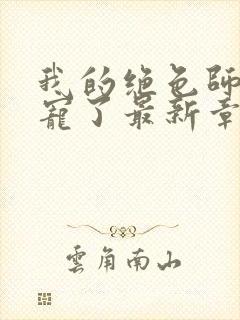 我的绝色師
寵了最新章
雲角南山